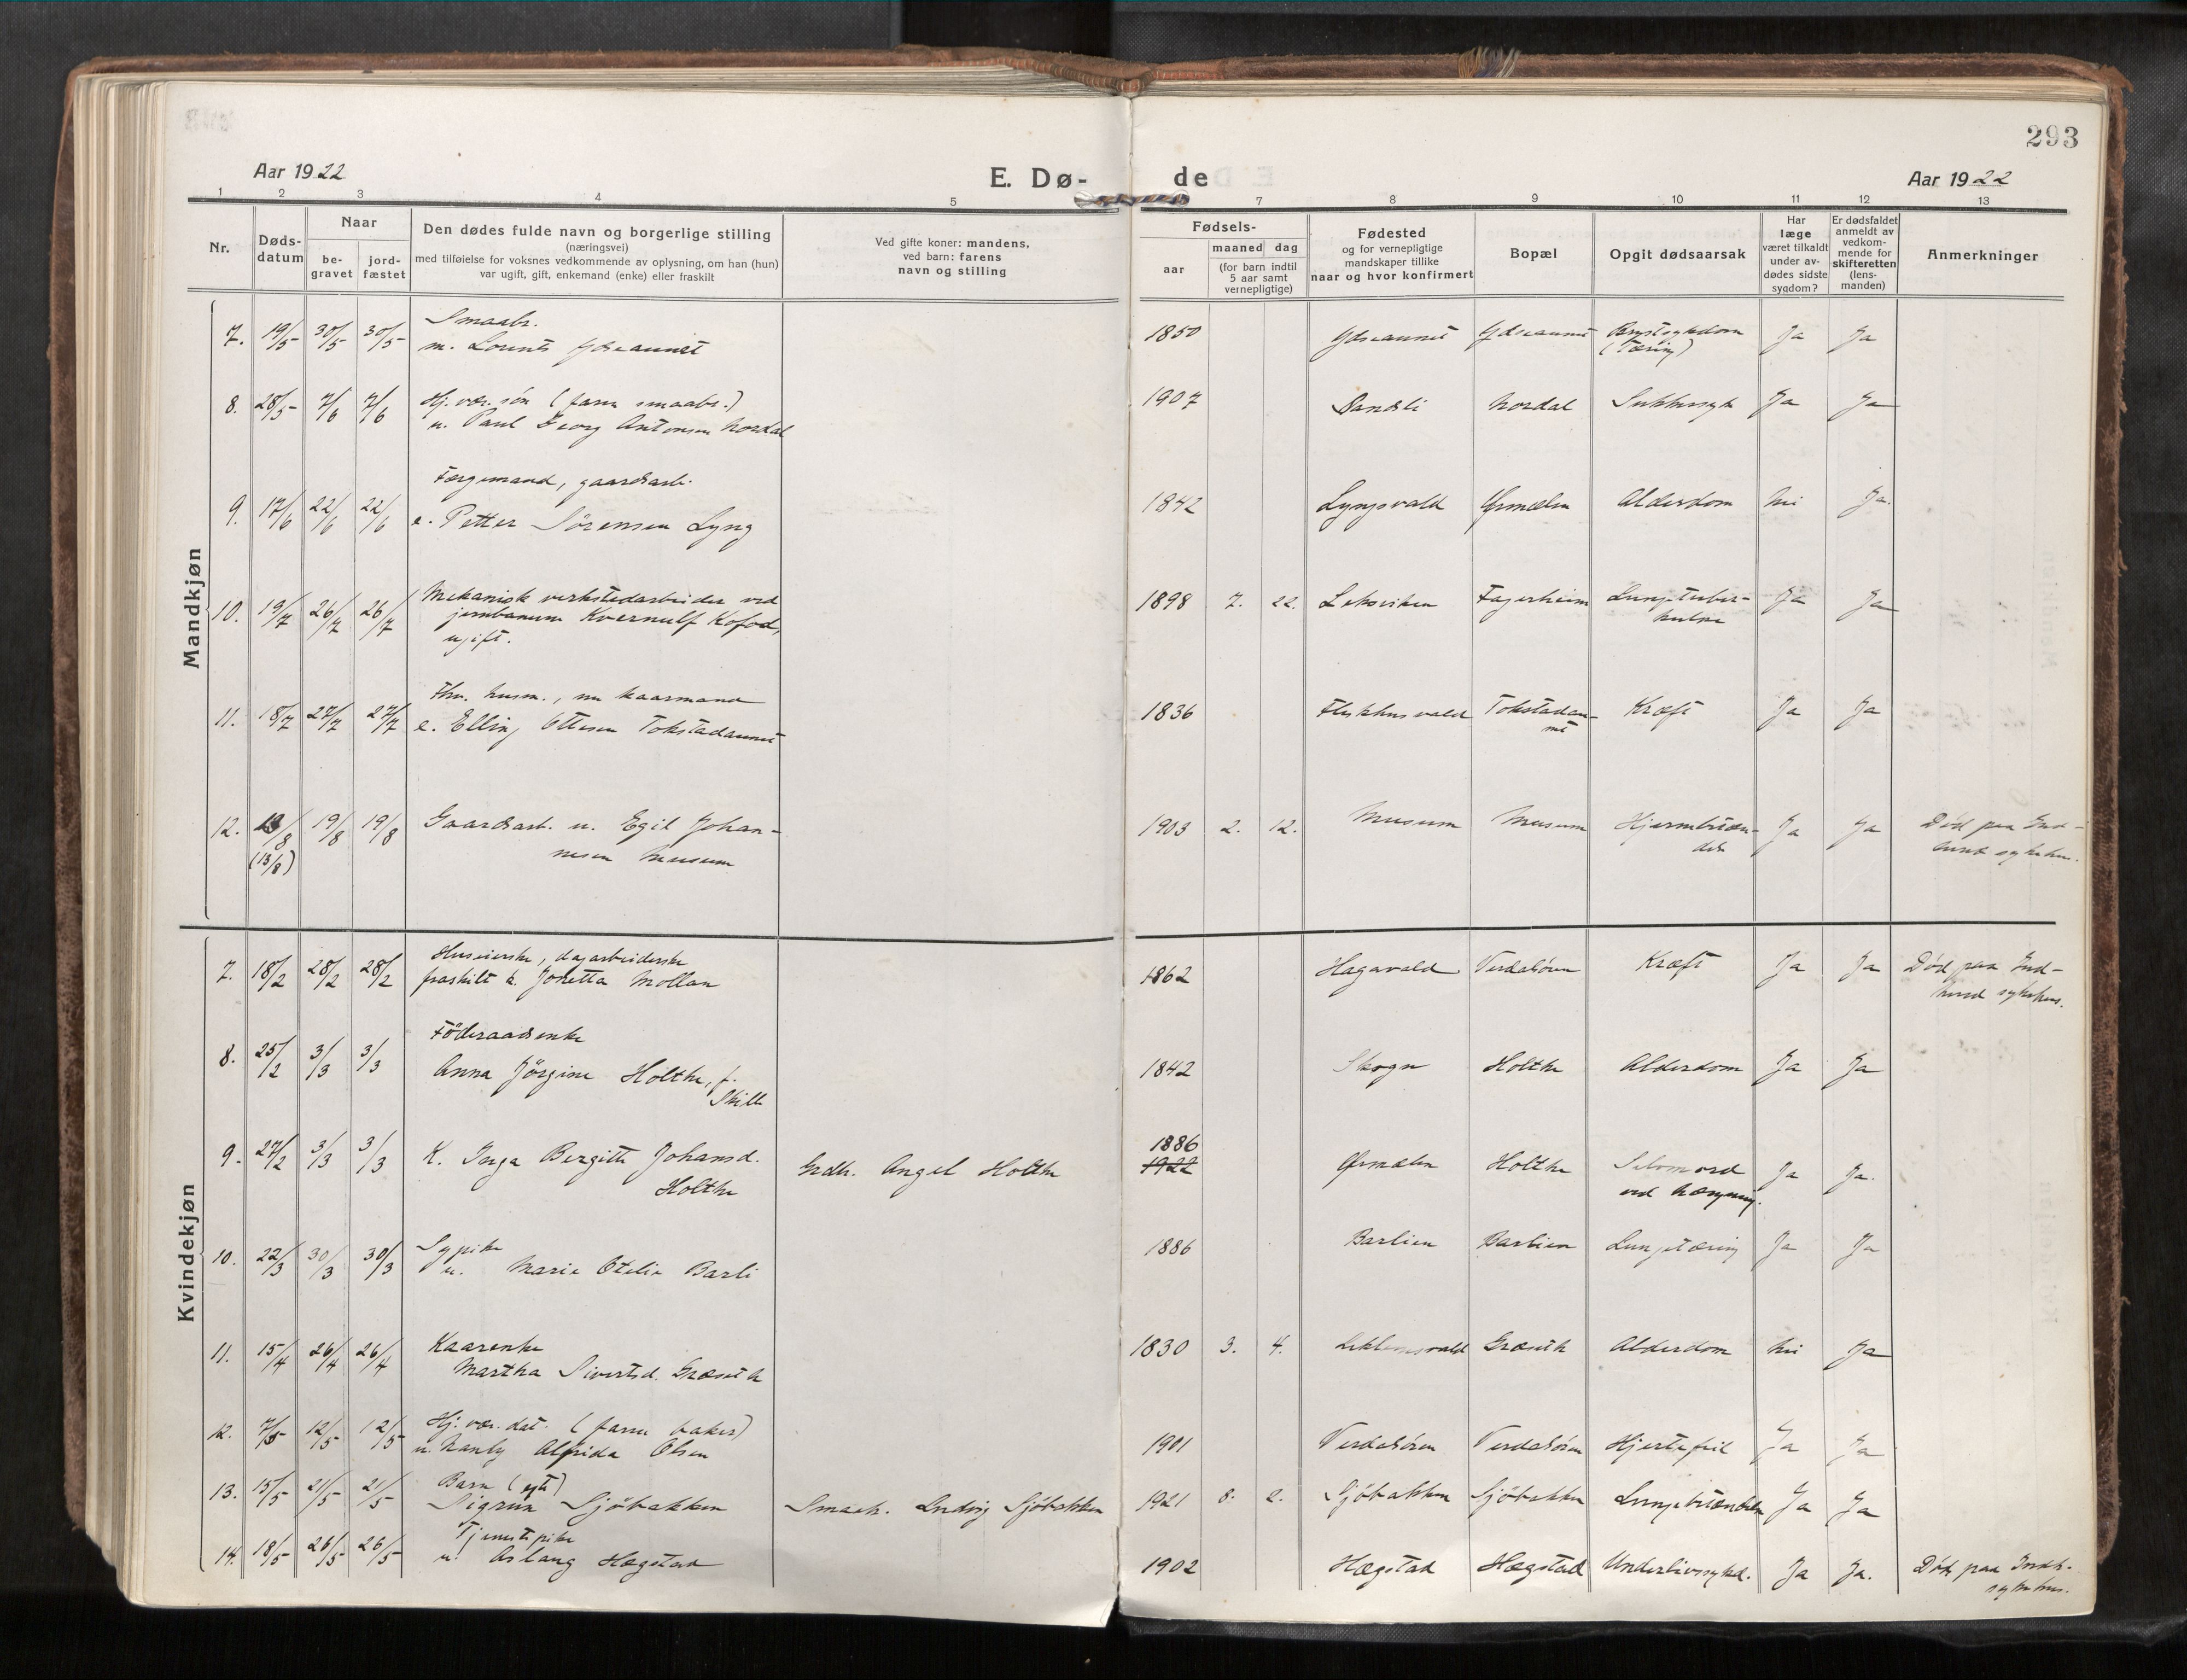 293
Aar 1922
E. Dø-
de
Aar 1922
1 2 3 4 5 6 7 8 9 10 11 12 13
Nr.
Døds-
datum
Naar
be-
gravet
jord-
fæstet
Den dødes fulde navn og borgerlige stilling
(næringsvei)
med tilføielse for voksnes vedkommende av oplysning, om han (hun)
var ugift, gift, enkemand (enke) eller fraskilt
Ved gifte koner: mandens,
ved barn: farens
navn og stilling
Fødsels-
aar
maaned dag
(for barn indtil
5 aar samt
vernepligtige)
Fødested
og for vernepligtige
mandskaper tillike
naar og hvor konfirmert
Bopæl
Opgit dødsaarsak
Har
læge
været tilkaldt
under av-
dødes sidste
sygdom?
Er dødsfaldet
anmeldt av
vedkom-
mende for
skifteretten
(lens-
manden)
Anmerkninger
Mandkjøn
Smaabr.
7. 19/5 30/5 30/5 m. Lorents Ydseaunet 1850 Ydseaunet Ydseaunet Brystsykdom Ja Ja
(Tæring)
Hj. vær. søn (faren smaabr.)
8. 28/5 7/6 7/6 u. Paul Georg Antonsen Nordal 1907 Sandsli Nordal Sukkersyk Ja Ja
Færgemand, gaardsarb.
9. 17/6 22/6 22/6 e. Petter Sörensen Lyng 1842 Lyngsvald Ørmelen Alderdom Nei Ja.
Mekanisk verkstedarbeider ved
10. 19/7 26/7 26/7 jernbanene Kvernulf Kofod, 1898 7. 22. Leksviken Fagerheim Lungetuber- Ja Ja
ugift.
kulose
Fhv. husm., nu kaarmand
11. 18/7 27/7 27/7 e. Elling Ottesen Tokstadaunet 1836 Flekkhusvald Tokstadau- Kræft Ja Ja
net
12. 13/8 19/8 19/8 Gaardsarb. u. Egil Johan- 1903 2. 12. Musum Musum Hjernebetæn- Ja Ja Död paa Ind-
(13/8) nesen Musum
delse
herred sykehus.
Kvindekjøn
Huseierske, dagarbeiderske
7. 18/2 28/2 28/2 fraskilt k. Jonetta Mollan 1862 Hagavald Verdalsören Kræft Ja Ja Död paa Ind-
herred sykehus.
Föderaadsenke
8. 25/2 3/3 3/3 Anna Jörgine Holthe, f. 1842 Skogn Holthe Alderdom Ja Ja
Skille
1886
9. 27/2 3/3 3/3 K. Inga Bergitte Johansd. Grdb. Angel Holthe 1922 Ørmelen Holthe Selvmord Ja Ja.
Holthe
ved hængning.
Sypike
10. 22/3 30/3 30/3 u. Marie Otelie Barli 1886 Barlien Barlien Lungetæring Ja Ja
Kaarenke
11. 15/4 26/4 26/4 Martha Sivertsd. Græseth 1830 3. 4. Leklemsvald Græseth Alderdom Nei Ja
Hj. vær. dat. (faren baker)
12. 7/5 12/5 12/5 u. Nanly Alfrida Olsen 1901 Verdalsören Verdalsören Hjertefeil Ja Ja
Barn (egte)
13. 15/5 21/5 21/5 Sigrun Sjöbakken Smaab. Ludvig Sjöbakken 1921 8. 2. Sjöbakken Sjöbakken Lungebetændelse Ja Ja
Tjenestepike
14. 18/5 26/5 26/5 u. Aslaug Hægstad 1902 Hægstad Hægstad Underlivssykd. Ja Ja. Död paa Indh.
sykehus.